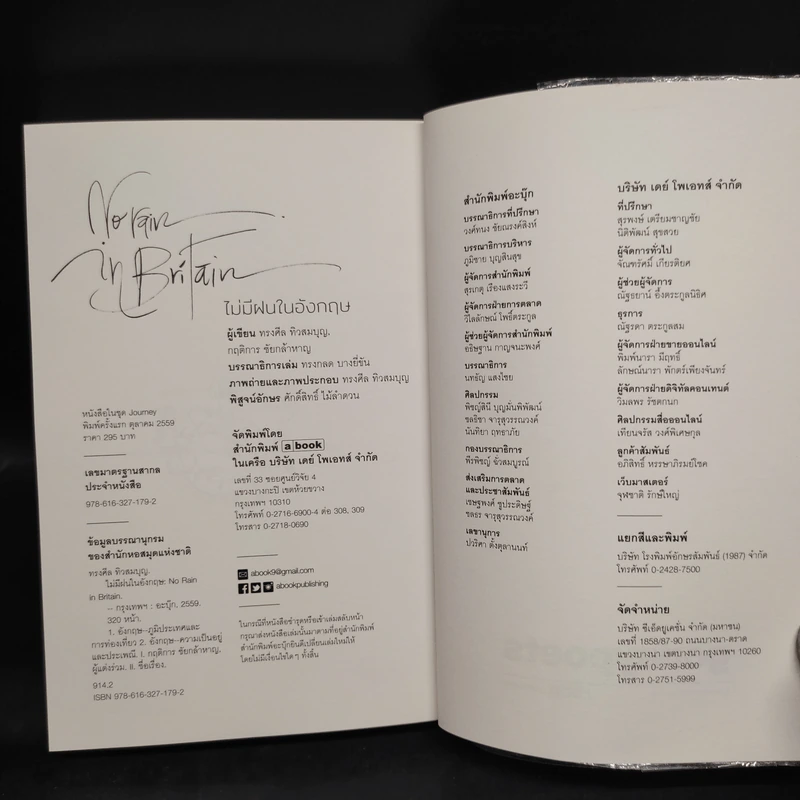 No rain
in Britain
ไม่มีฝนในอังกฤษ
ผู้เขียน ทรงศีล ทิวสมบุญ,
กฤติการ ชัยกล้าหาญ
บรรณาธิการเล่ม ทรงกลด บางยี่ขัน
ภาพถ่ายและภาพประกอบ ทรงศีล ทิวสมบุญ
พิสูจน์อักษร ศักดิ์สิทธิ์ ไม้ลำดวน
หนังสือในชุด Journey
พิมพ์ครั้งแรก ตุลาคม 2559
ราคา 295 บาท
เลขมาตรฐานสากล
ประจำหนังสือ
978-616-327-179-2
ข้อมูลบรรณานุกรม
ของสำนักหอสมุดแห่งชาติ
ทรงศีล ทิวสมบุญ.
ไม่มีฝนในอังกฤษ: No Rain
in Britain.
-- กรุงเทพฯ : อะบุ๊ก, 2559.
320 หน้า.
1. อังกฤษ--ภูมิประเทศและ
การท่องเที่ยว 2. อังกฤษ--ความเป็นอยู่
และประเพณี. I. กฤติการ ชัยกล้าหาญ,
ผู้แต่งร่วม. II. ชื่อเรื่อง.
914.2
ISBN 978-616-327-179-2
จัดพิมพ์โดย
สำนักพิมพ์ a book
ในเครือ บริษัท เดย์ โพเอทส์ จำกัด
เลขที่ 33 ซอยศูนย์วิจัย 4
แขวงบางกะปิ เขตห้วยขวาง
กรุงเทพฯ 10310
โทรศัพท์ 0-2716-6900-4 ต่อ 308, 309
โทรสาร 0-2718-0690
abook9@gmail.com
abookpublishing
ในกรณีที่หนังสือชำรุดหรือเข้าเล่มสลับหน้า
กรุณาส่งหนังสือเล่มนั้นมาตามที่อยู่สำนักพิมพ์
สำนักพิมพ์อะบุ๊กยินดีเปลี่ยนเล่มใหม่ให้
โดยไม่มีเงื่อนไขใดๆ ทั้งสิ้น
สำนักพิมพ์อะบุ๊ก
บรรณาธิการที่ปรึกษา
วงศ์ทนง ชัยณรงค์สิงห์
บรรณาธิการบริหาร
ภูมิชาย บุญสินสุข
ผู้จัดการสำนักพิมพ์
สุรเกตุ เรืองแสงระวี
ผู้จัดการฝ่ายการตลาด
วิไลลักษณ์ โพธิ์ตระกูล
ผู้ช่วยผู้จัดการสำนักพิมพ์
อธิษฐาน กาญจนะพงศ์
บรรณาธิการ
นทธัญ แสงไชย
ศิลปกรรม
พิชญ์สินี บุญมั่นพิพัฒน์
ชลธิชา จารุสุวรรณวงค์
นันทิยา ฤทธาภัย
กองบรรณาธิการ
พีรพิชญ์ ฉั่วสมบูรณ์
ส่งเสริมการตลาด
และประชาสัมพันธ์
เชษฐพงศ์ ชูประดิษฐ์
ชลธร จารุสุวรรณวงค์
เลขานุการ
ปวริศา ตั้งตุลานนท์
บริษัท เดย์ โพเอทส์ จำกัด
ที่ปรึกษา
สุรพงษ์ เตรียมชาญชัย
นิติพัฒน์ สุขสวย
ผู้จัดการทั่วไป
จัณฑรัศมิ์ เกียรติยศ
ผู้ช่วยผู้จัดการ
ณัฐธยาน์ อึ้งตระกูลนิธิศ
ธุรการ
ณัฐรดา ตระกูลสม
ผู้จัดการฝ่ายขายออนไลน์
พิมพ์นารา มีฤทธิ์
ลักษณ์นารา พักตร์เพียงจันทร์
ผู้จัดการฝ่ายดิจิทัลคอนเทนต์
วิมลพร รัชตกนก
ศิลปกรรมสื่อออนไลน์
เทียนจรัส วงศ์พิเศษกุล
ลูกค้าสัมพันธ์
อภิสิทธิ์ หรรษาภิรมย์โชค
เว็บมาสเตอร์
จุฬชาติ รักษ์ใหญ่
แยกสีและพิมพ์
บริษัท โรงพิมพ์อักษรสัมพันธ์ (1987) จำกัด
โทรศัพท์ 0-2428-7500
จัดจำหน่าย
บริษัท ซีเอ็ดยูเคชั่น จำกัด (มหาชน)
เลขที่ 1858/87-90 ถนนบางนา-ตราด
แขวงบางนา เขตบางนา กรุงเทพฯ 10260
โทรศัพท์ 0-2739-8000
โทรสาร 0-2751-5999